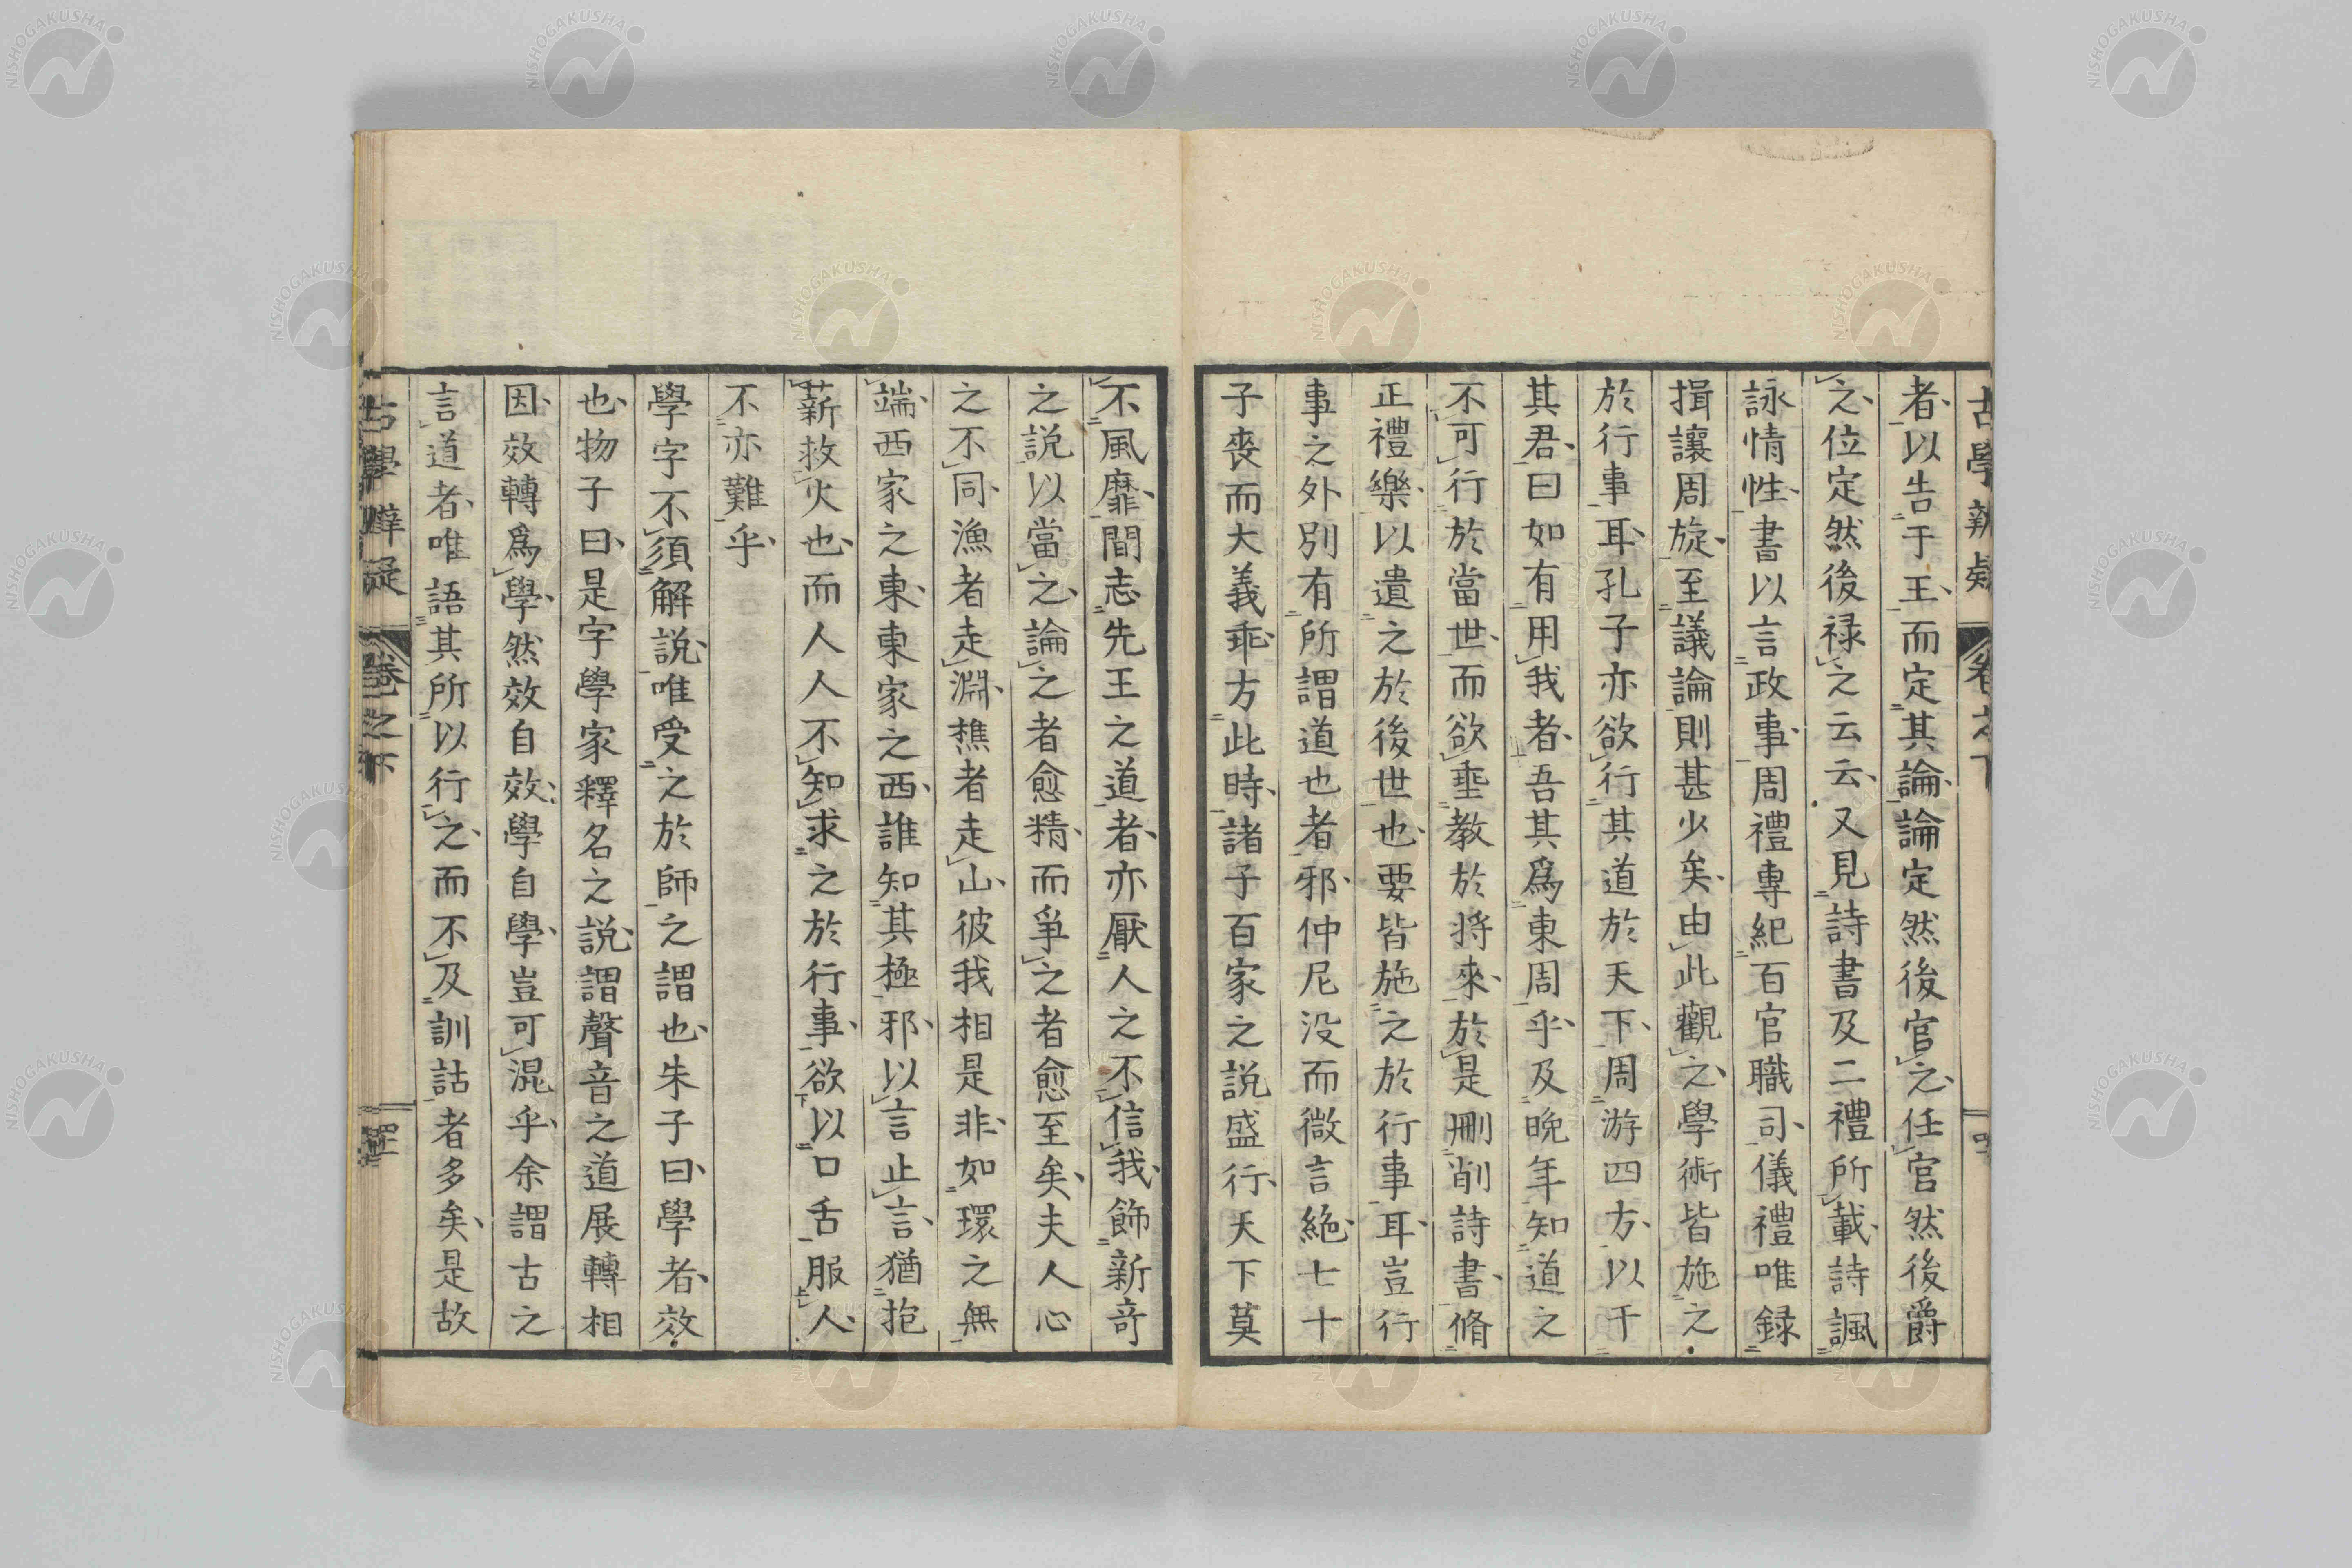 古學辨疑
卷之下
者以告于王而定其論論定然後官之任官然後爵
之位定然後禄之云云又見詩書及二禮所載詩諷
詠情性書以言政事周禮專紀百官職司儀禮唯録
揖讓周旋至議論則甚少矣由此觀之學術皆施之
於行事耳孔子亦欲行其道於天下周游四方以干
其君曰如有用我者吾其爲東周乎及晚年知道之
不可行於當世而欲垂教於將來於是刪削詩書脩
正禮樂以遺之於後世也要皆施之於行事耳豈行
事之外別有所謂道也者邪仲尼没而微言絶七十
子喪而大義乖方此時諸子百家之説盛行天下莫
不風靡間志先王之道者亦厭人之不信我飾新竒
之説以當之論之者愈精而爭之者愈至矣夫人心
之不同漁者走淵樵者走山彼我相是非如環之無
端西家之東東家之西誰知其極邪以言止言猶抱
薪救火也而人人不知求之於行事欲以口舌服人
不亦難乎
學字不須解説唯受之於師之謂也朱子曰學者效
也物子曰是字學家釋名之説謂聲音之道展轉相
因效轉爲學然效自效學自學豈可混乎余謂古之
言道者唯語其所以行之而不及訓詁者多矣是故
古學辨疑
卷之下
NISHOGAKUSHA